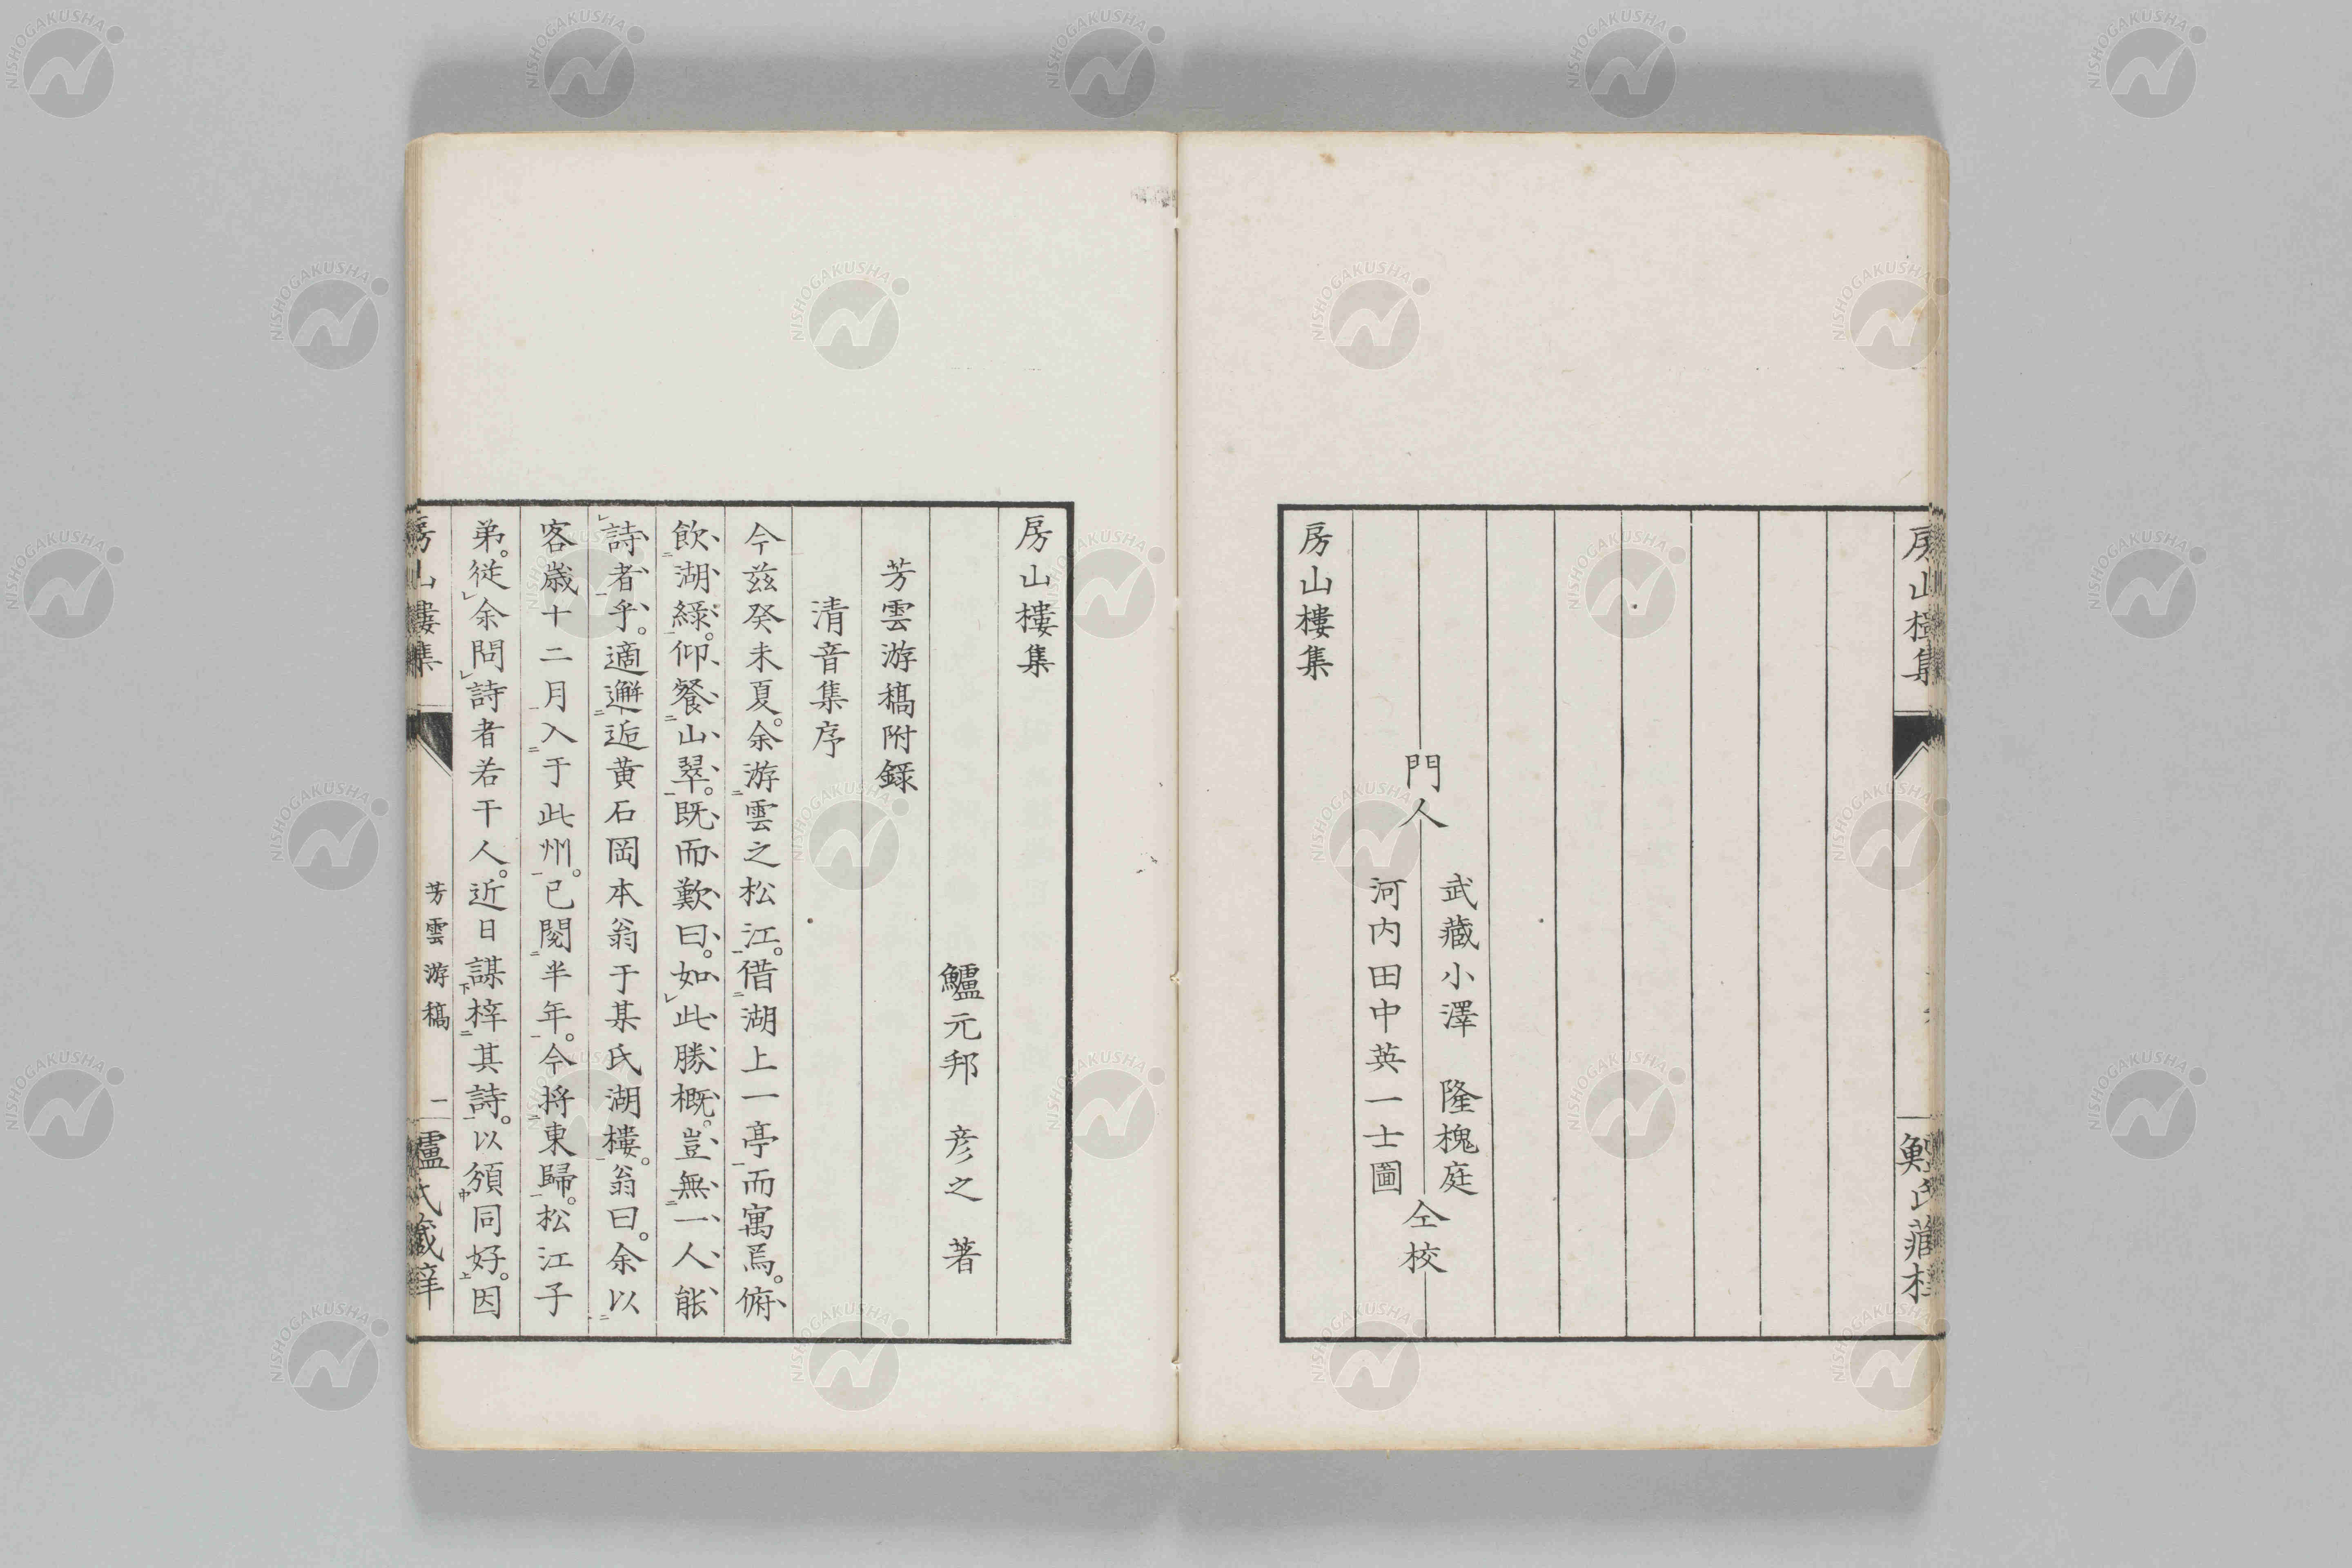 房山樓集
門人
武藏小澤　隆槐庭
河内田中英一士圖
仝校
房山樓集
房山樓集
鱸元邦　彦之　著
芳雲游稿附錄
清音集序
今茲癸未夏。余游雲之松江。借湖上一亭而寓焉。俯
飲湖綠。仰餐山翠。既而歎曰。如此勝概。豈無一人能
詩者乎。適邂逅黄石岡本翁于某氏湖樓。翁曰。余以
客歳十二月入于此州。已閲半年。今将東歸。松江子
弟。從余問詩者若干人。近日謀梓其詩。以頒同好。因
房山樓集
芳雲游稿
二
鱸氏藏梓
NISHOGAKUSHA